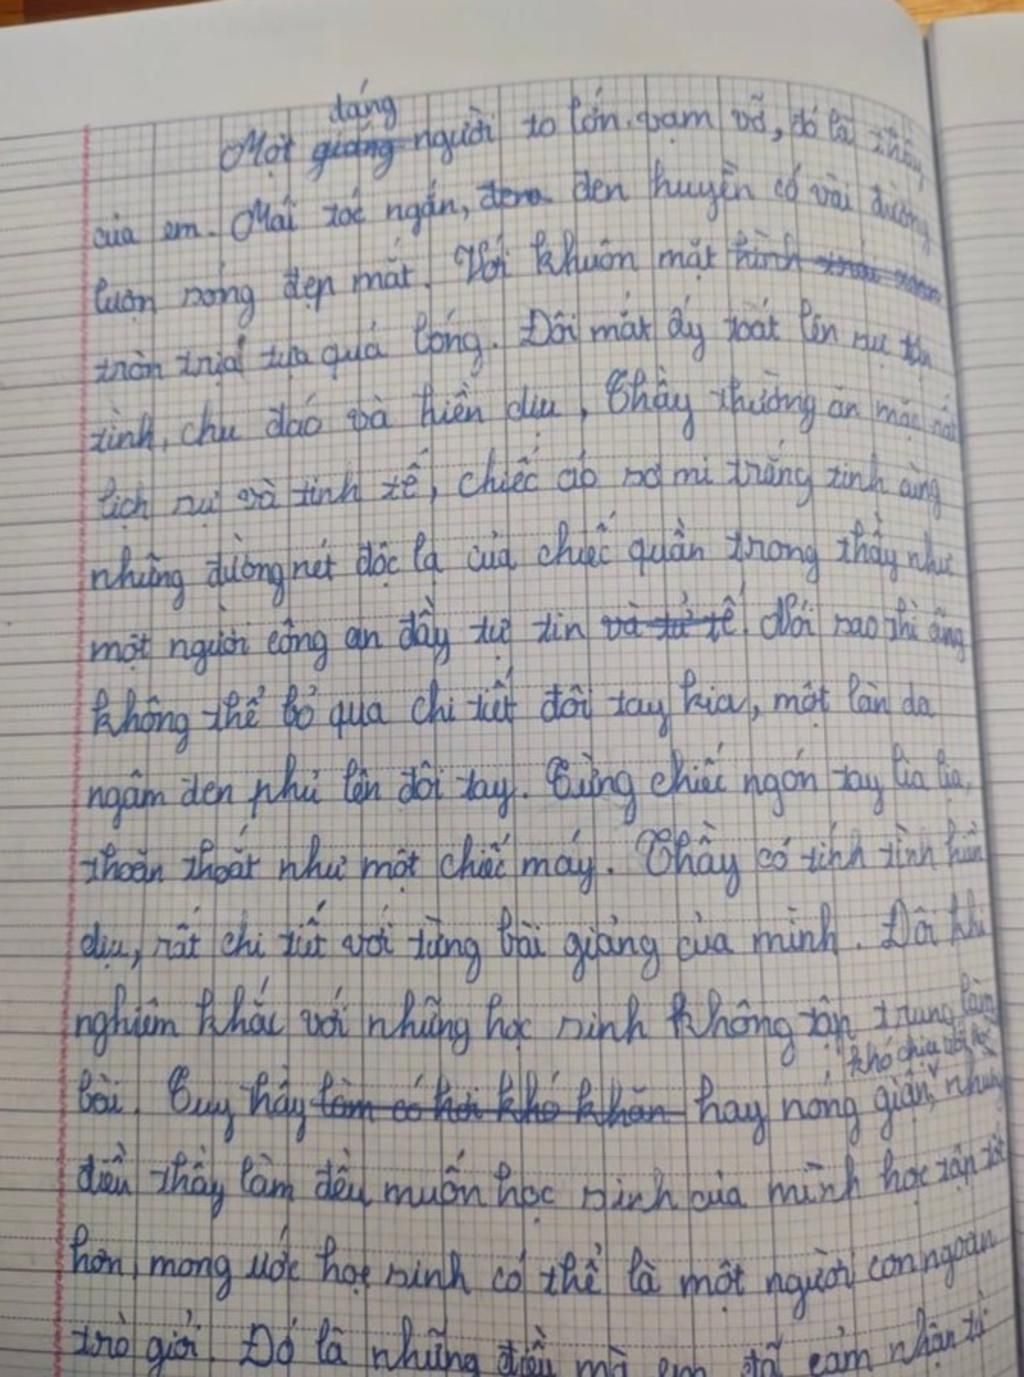 dáng
Một giáng người to lớn vạm vỡ, đó là thầy
của em. Mái tóc ngắn, đen huyền có vài đường
lượn sóng đẹp mắt. Với khuôn mặt hình
tròn trịa tựa quả bóng. Đôi mắt ấy toát lên sự
tình, chu đáo và hiền dịu, Thầy thường ăn mặc rất
lịch sự và tinh tế, chiếc áo sơ mi trắng tinh cùng
những đường nét độc lạ của chiếc quần trong thầy như
một người công an đầy tự tin và tử tế. Nói sao thì cũng
không thể bỏ qua chi tiết đôi tay kia, một làn da
ngâm đen phủ lên đôi tay. Cùng chiếc ngón tay lia lịa,
thoăn thoắt như một chiếc máy. Thầy có tính tình hiền
dịu, rất chi tiết với từng bài giảng của mình. Đôi khi
nghiêm khắc với những học sinh không tập trung làm
khó chịu
bài. Tuy thầy làm có hơi khó khăn hay nóng giận, nhưng
điều thầy làm đều muốn học sinh của mình học tập tốt
hơn, mong ước học sinh có thể là một người con ngoan
trò giỏi. Đó là những điều mà em đã cảm nhận từ